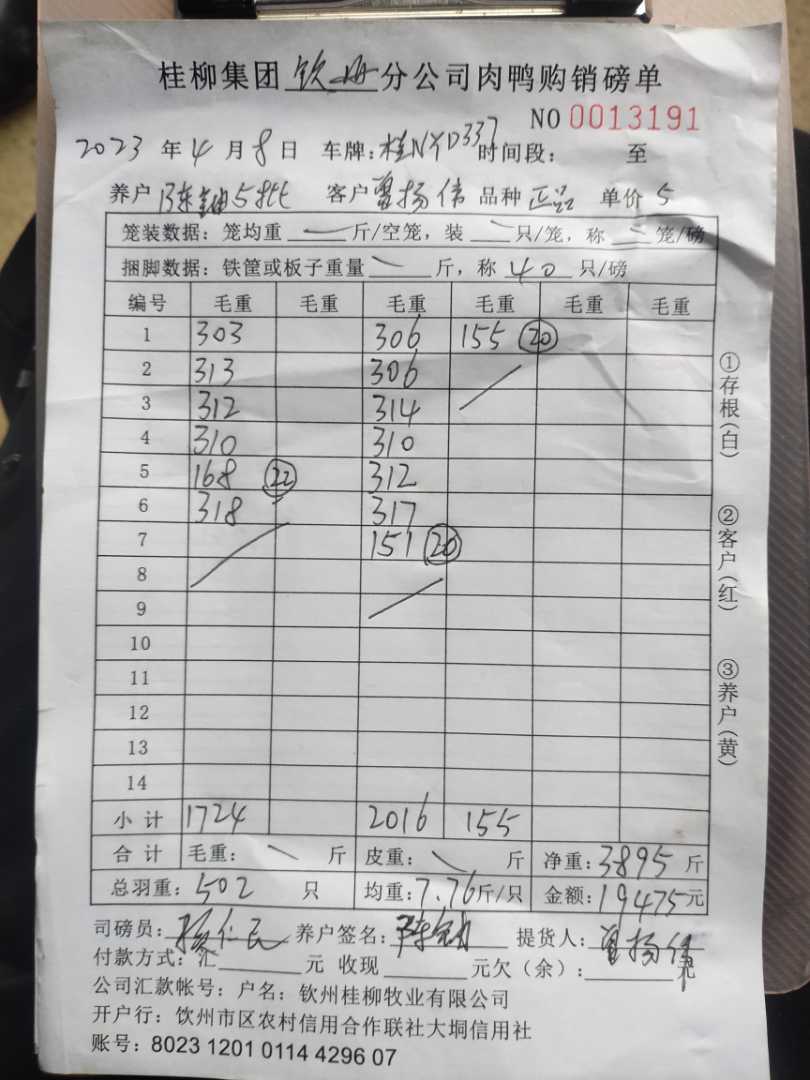 桂柳集团 钦州 分公司肉鸭购销磅单
NO 0013191
2023 年 4 月 8 日 车牌:桂NYD337 时间段: 至
养户 陈 5批 客户 曾扬伟 品种 正品 单价 5
笼装数据: 笼均重 斤/空笼, 装 只/笼, 称 笼/磅
捆脚数据: 铁筐或板子重量 斤, 称 40 只/磅
编号 毛重 毛重 毛重 毛重 毛重 毛重
1 303 306 155 20
2 313 306
3 312 314
4 310 310
5 168 22 312
6 318 317
7 151 20
8
9
10
11
12
13
14
小计 1724 2016 155
合计 毛重: 斤 皮重: 斤 净重: 3895 斤
总羽重: 502 只 均重: 7.76 斤/只 金额: 19475 元
司磅员: 杨仁民 养户签名: 陈 提货人: 曾扬伟
付款方式: 汇 元 收现 元欠(余): 元
公司汇款帐号: 户名: 钦州桂柳牧业有限公司
开户行: 饮州市区农村信用合作联社大垌信用社
账号: 8023 1201 0114 4296 07
①存根(白)
②客户(红)
③养户(黄)